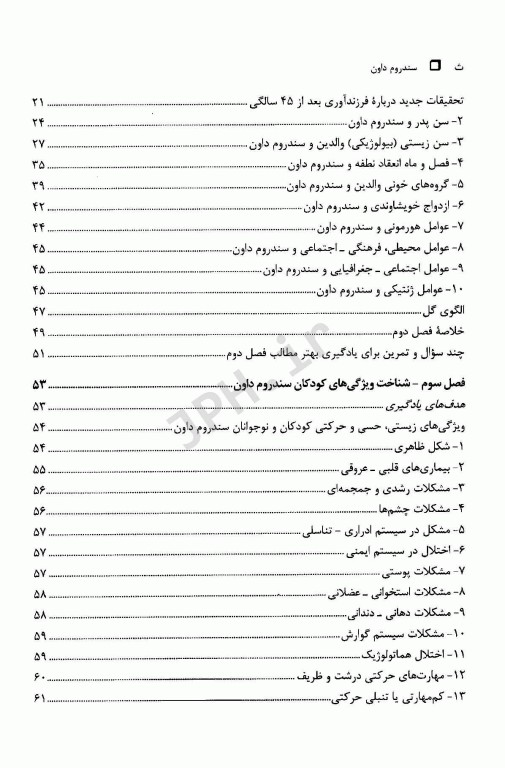 ث □ سندروم داون
تحقیقات جدید دربارۀ فرزندآوری بعد از ۴۵ سالگی ........ ۲۱
۲- سن پدر و سندروم داون ........ ۲۴
۳- سن زیستی (بیولوژیکی) والدین و سندروم داون ........ ۲۷
۴- فصل و ماه انعقاد نطفه و سندروم داون ........ ۳۵
۵- گروه‌های خونی والدین و سندروم داون ........ ۳۹
۶- ازدواج خویشاوندی و سندروم داون ........ ۴۲
۷- عوامل هورمونی و سندروم داون ........ ۴۴
۸- عوامل محیطی، فرهنگی ـ اجتماعی و سندروم داون ........ ۴۵
۹- عوامل اجتماعی ـ جغرافیایی و سندروم داون ........ ۴۵
۱۰- عوامل ژنتیکی و سندروم داون ........ ۴۵
الگوی گل ........ ۴۷
خلاصۀ فصل دوم ........ ۴۹
چند سؤال و تمرین برای یادگیری بهتر مطالب فصل دوم ........ ۵۱
فصل سوم - شناخت ویژگی‌های کودکان سندروم داون ........ ۵۳
هدف‌های یادگیری ........ ۵۳
ویژگی‌های زیستی، حسی و حرکتی کودکان و نوجوانان سندروم داون ........ ۵۴
۱- شکل ظاهری ........ ۵۴
۲- بیماری‌های قلبی ـ عروقی ........ ۵۵
۳- مشکلات رشدی و جمجمه‌ای ........ ۵۶
۴- مشکلات چشم‌ها ........ ۵۶
۵- مشکل در سیستم ادراری - تناسلی ........ ۵۷
۶- اختلال در سیستم ایمنی ........ ۵۷
۷- مشکلات پوستی ........ ۵۷
۸- مشکلات استخوانی ـ عضلانی ........ ۵۸
۹- مشکلات دهانی ـ دندانی ........ ۵۸
۱۰- مشکلات سیستم گوارش ........ ۵۹
۱۱- اختلال هماتولوژیک ........ ۵۹
۱۲- مهارت‌های حرکتی درشت و ظریف ........ ۶۰
۱۳- کم‌مهارتی یا تنبلی حرکتی ........ ۶۱
JPH.ir